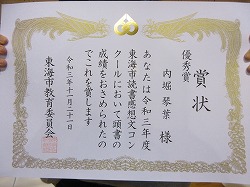 賞状
優秀賞
内堀 琴葉 様
あなたは令和三年度
東海市読書感想文コン
クールにおいて頭書の
成績をおさめられたの
でこれを賞します
令和三年十一月二十一日
東海市教育委員会